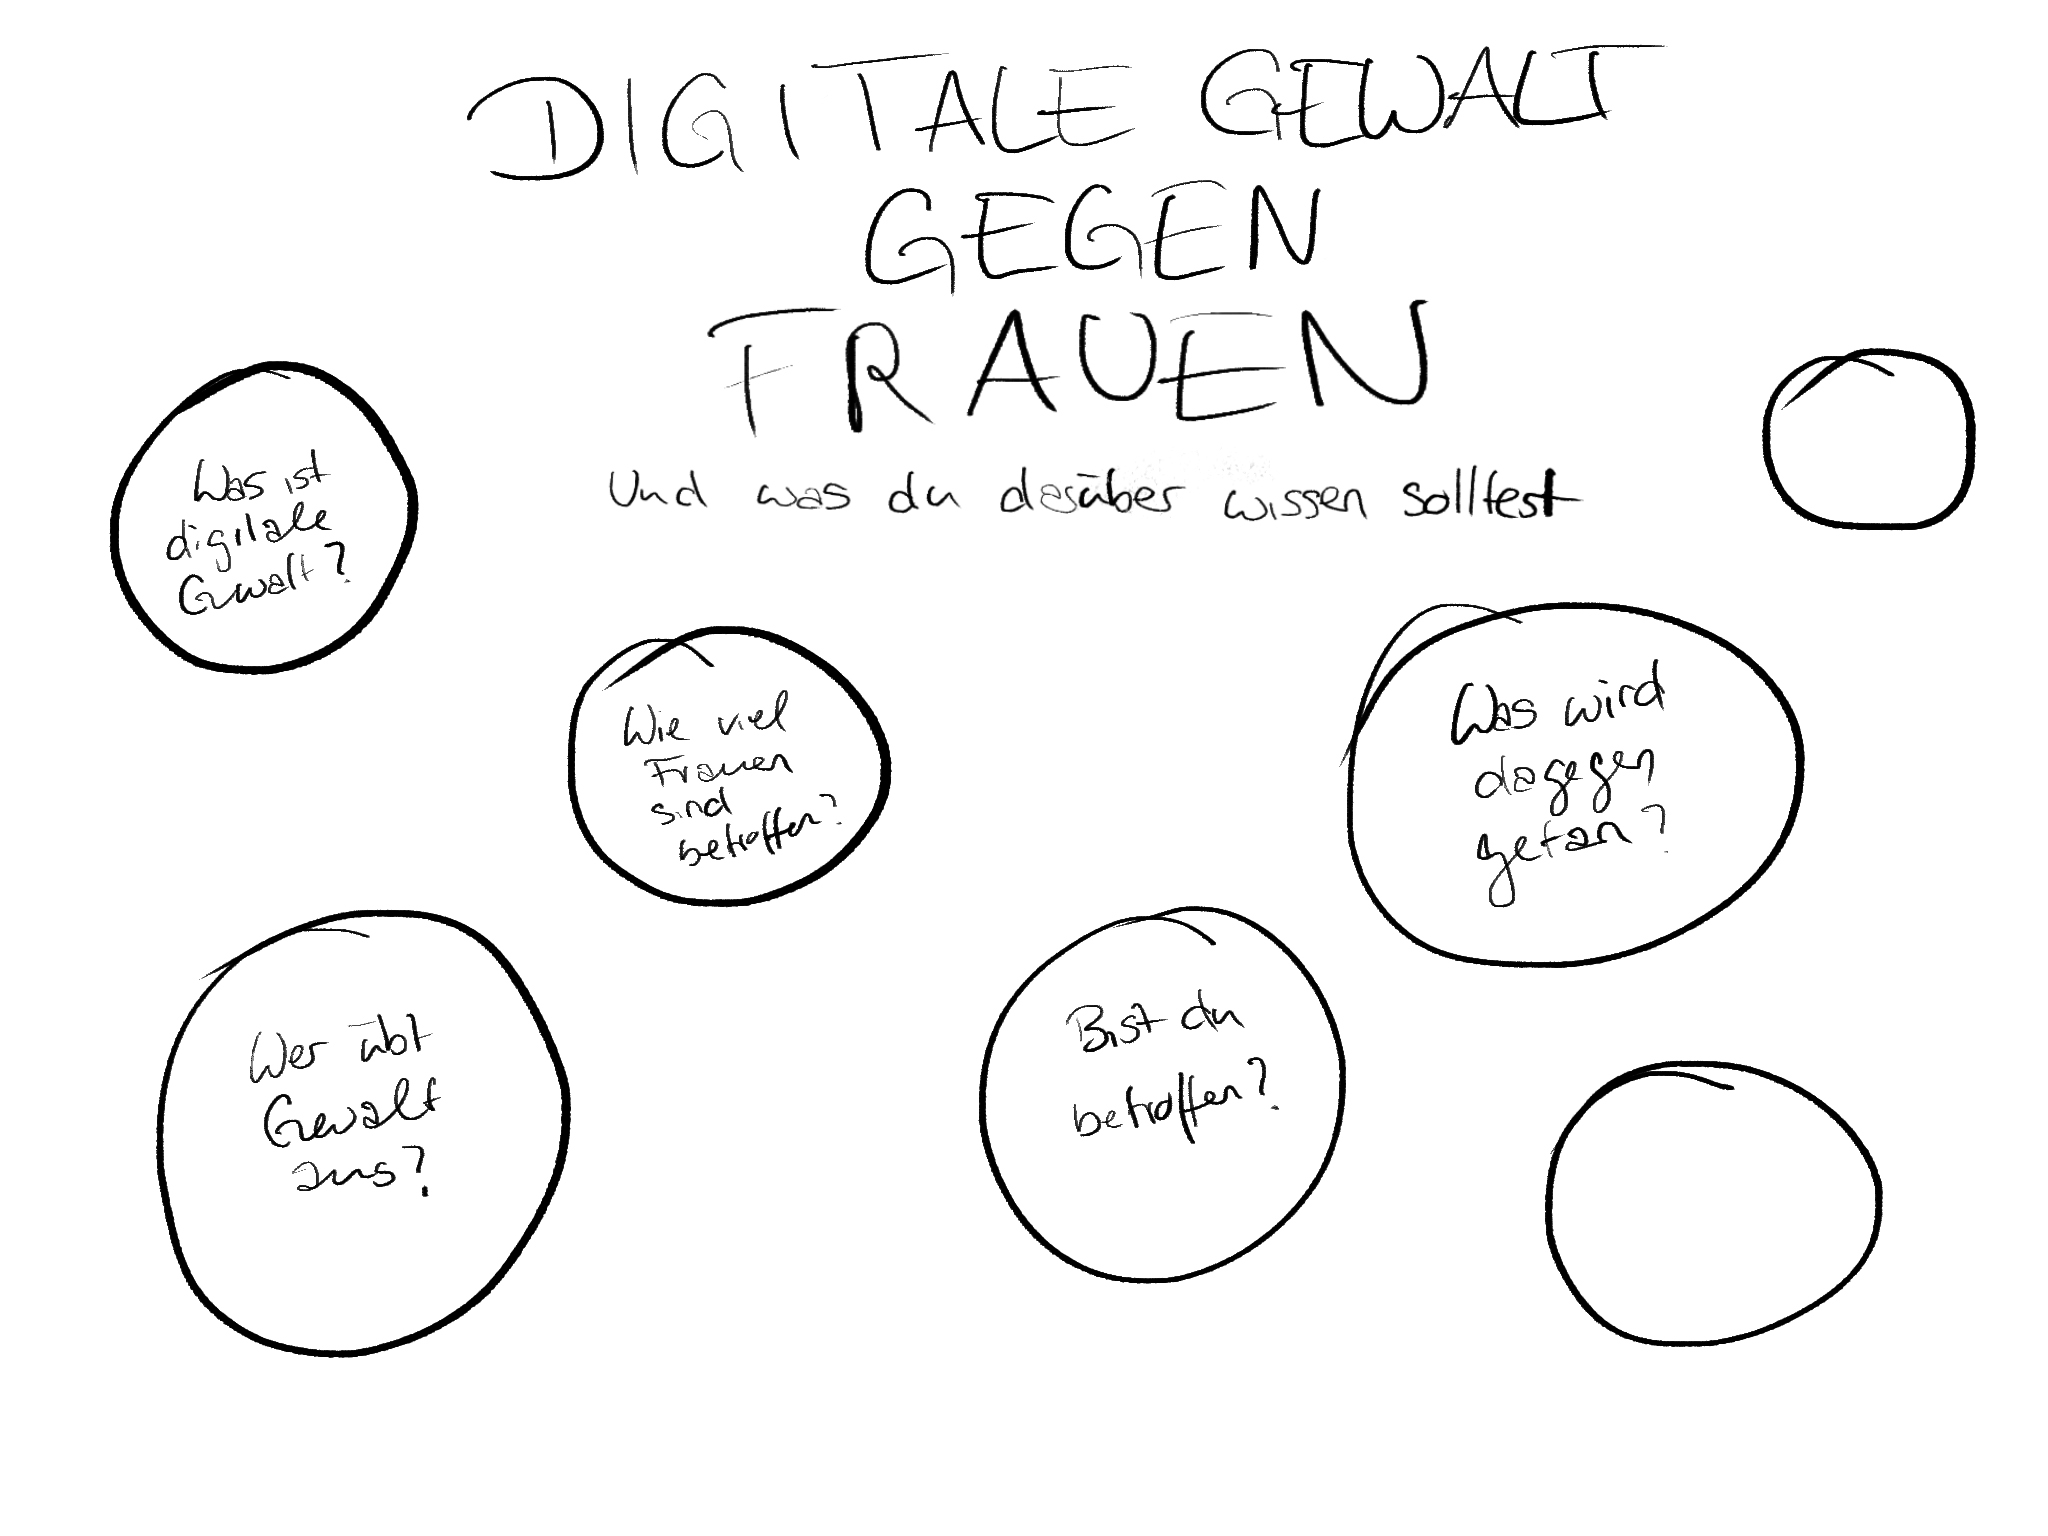 DIGITALE GEWALT
GEGEN
FRAUEN
Und was du darüber wissen solltest
Was ist
digitale
Gewalt?
Wie viel
Frauen
sind
betroffen?
Was wird
dagegen
getan?
Wer übt
Gewalt
aus?
Bist du
betroffen?